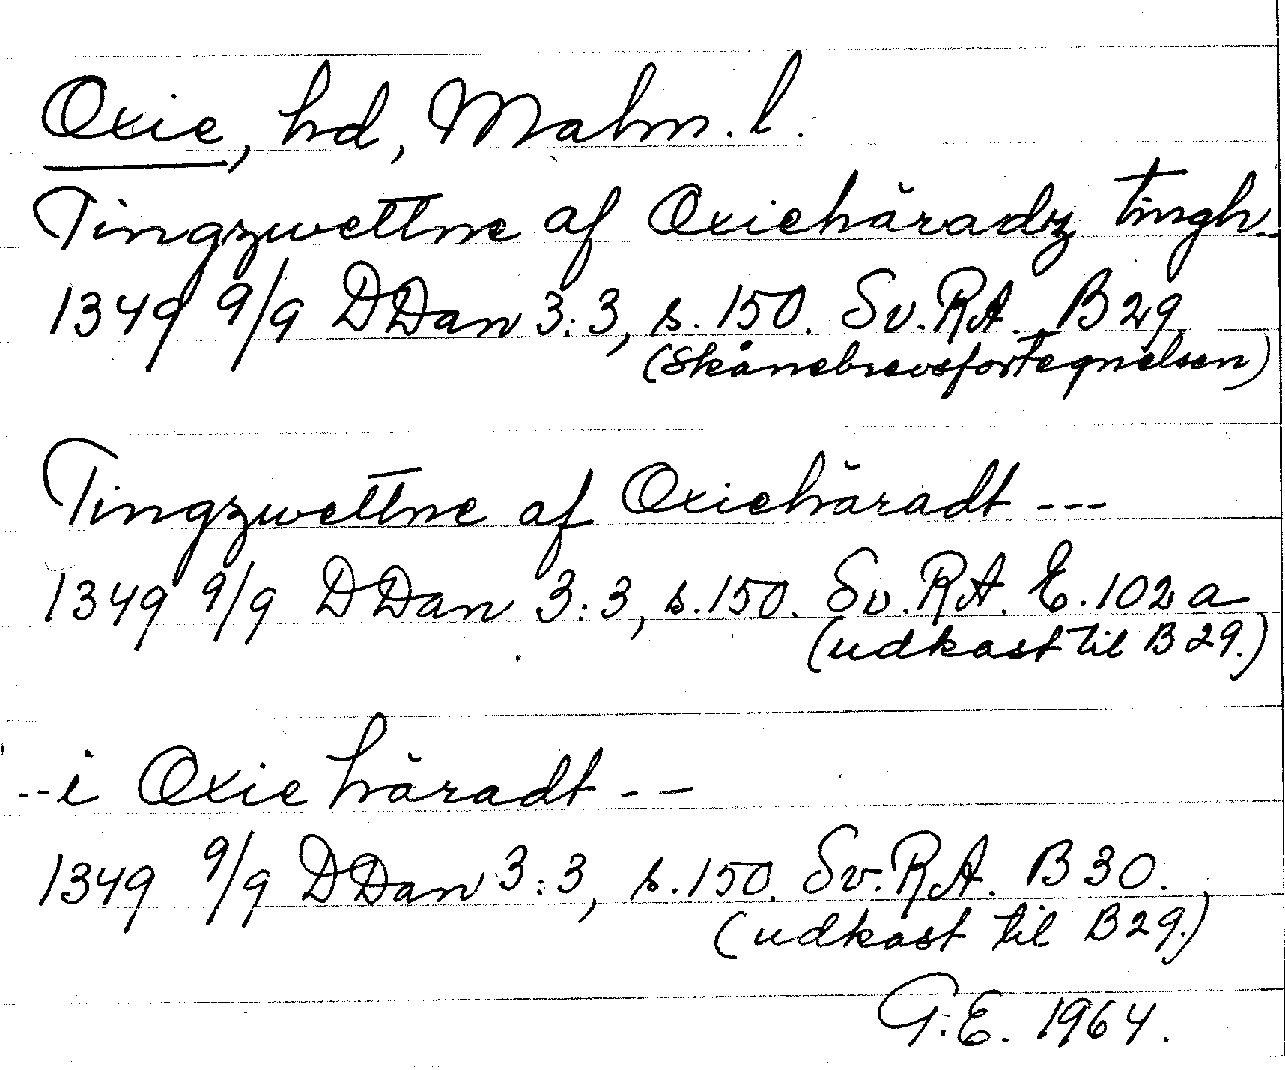 Oxie, hd, Malm. l.
Tingzwettne af Oxiehäradz tingh.
1349 9/9 DDan 3:3, s. 150. Sv. RA. B 29
(Skånebrevsfortegnelsen)
Tingzwettne af Oxiehäradt ---
1349 9/9 DDan 3:3, s. 150. Sv. RA. E. 102 a
(udkast til B 29.)
-- i Oxie häradt --
1349 9/9 DDan 3:3, s. 150. Sv. RA. B 30.
(udkast til B 29.)
G.E. 1964.